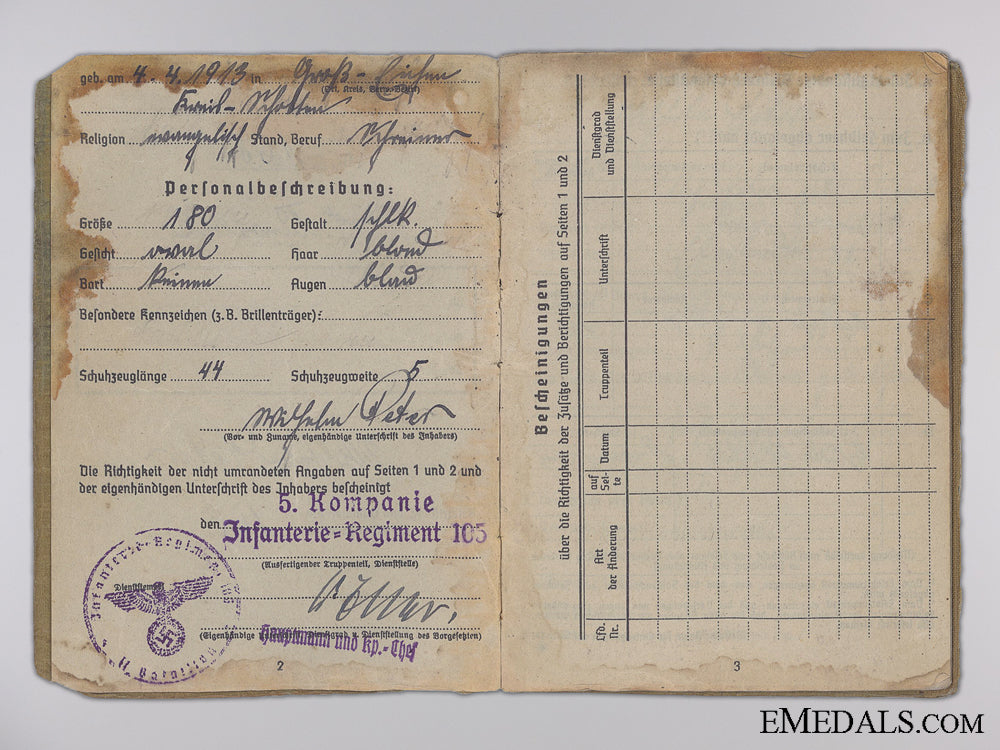 geb. am 4. 4. 1913 in Groß-Eichen
(Ort, Kreis, Verw.-Bezirk)
Kreis-Schotten
Religion evangelisch Stand, Beruf Schreiner
Personalbeschreibung:
Größe 180 Gestalt schlk.
Gesicht oval Haar blond
Bart keinen Augen blau
Besondere Kennzeichen (z. B. Brillenträger):
Schuhzeuglänge 44 Schuhzeugweite 5
Wilhelm Peter
(Vor- und Zuname, eigenhändige Unterschrift des Inhabers)
Die Richtigkeit der nicht umrandeten Angaben auf Seiten 1 und 2 und
der eigenhändigen Unterschrift des Inhabers bescheinigt
5. Kompanie
den Infanterie-Regiment 105
(Ausfertigender Truppenteil, Dienststelle)
Infanterie-Regiment 105
II. Bataillon
(Eigenhändige Dienstgrad u. Dienststellung des Vorgesetzten)
Hauptmann und Kp.-Chef
2
Bescheinigungen
über die Richtigkeit der Zusätze und Berichtigungen auf Seiten 1 und 2
Lfd. Nr.
Art der Änderung
auf Sei-te
Datum
Truppenteil
Unterschrift
Dienstgrad und Dienststellung
3
EMEDALS.COM